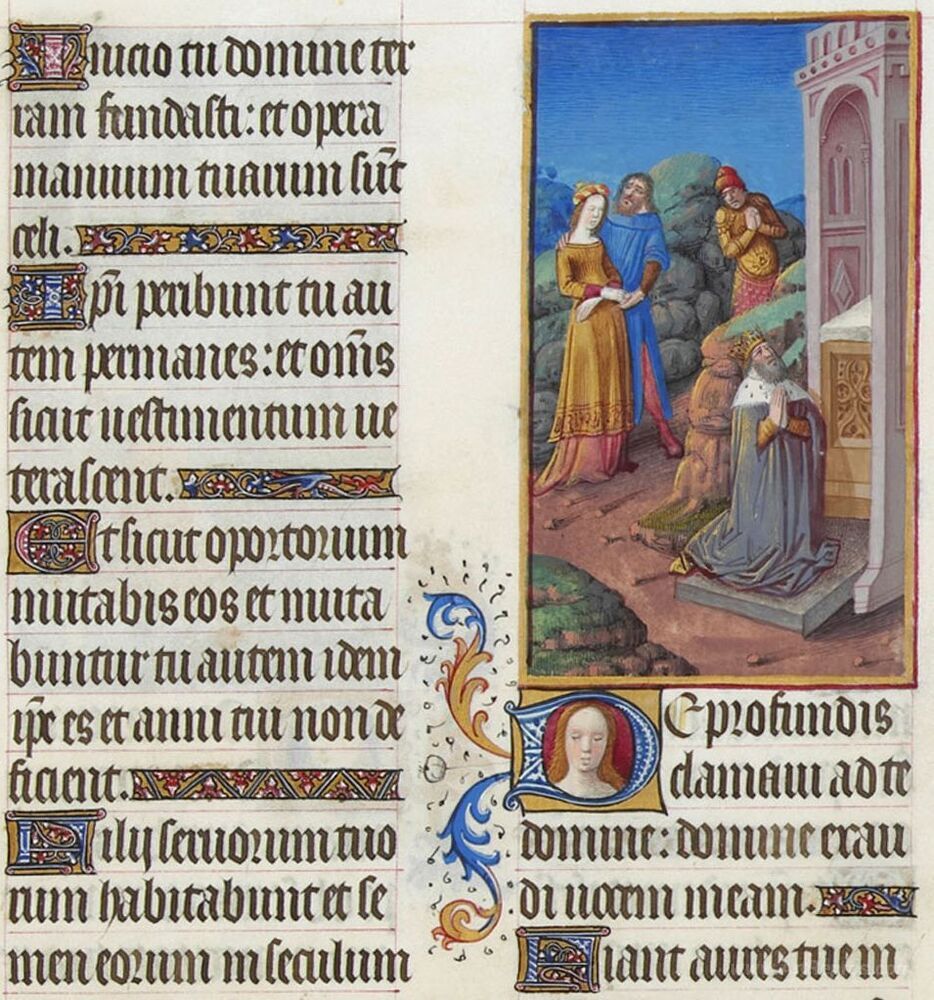 Inicio tu domine ter
ram fundasti: et opera
manuum tuarum sūt
celi.
Ipi peribunt tu au
tem permanes: et om̄s
sicut uestimentum ue
terascent.
Et sicut oportorium
mutabis eos et muta
buntur tu autem idem
ipē es et anni tui non de
ficient.
Filij seruorum tuo
rum habitabunt et se
men eorum in seculum
De profundis
clamaui ad te
domine: domine exau
di uocem meam.
Fiant aures tue in